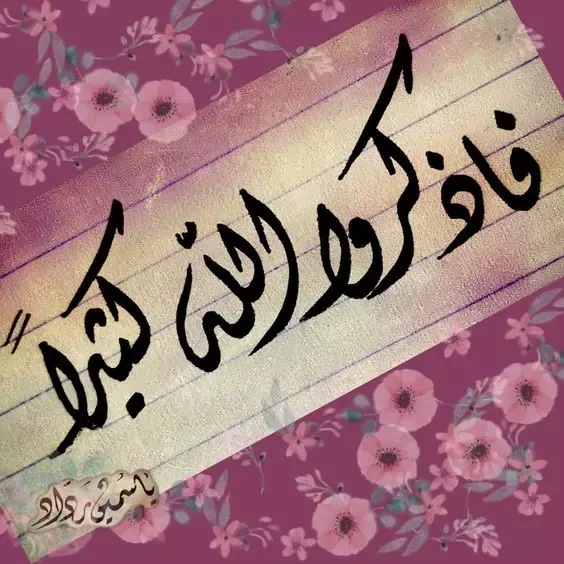 فاذكروا اللّه كثيراً
ياسمين رداد